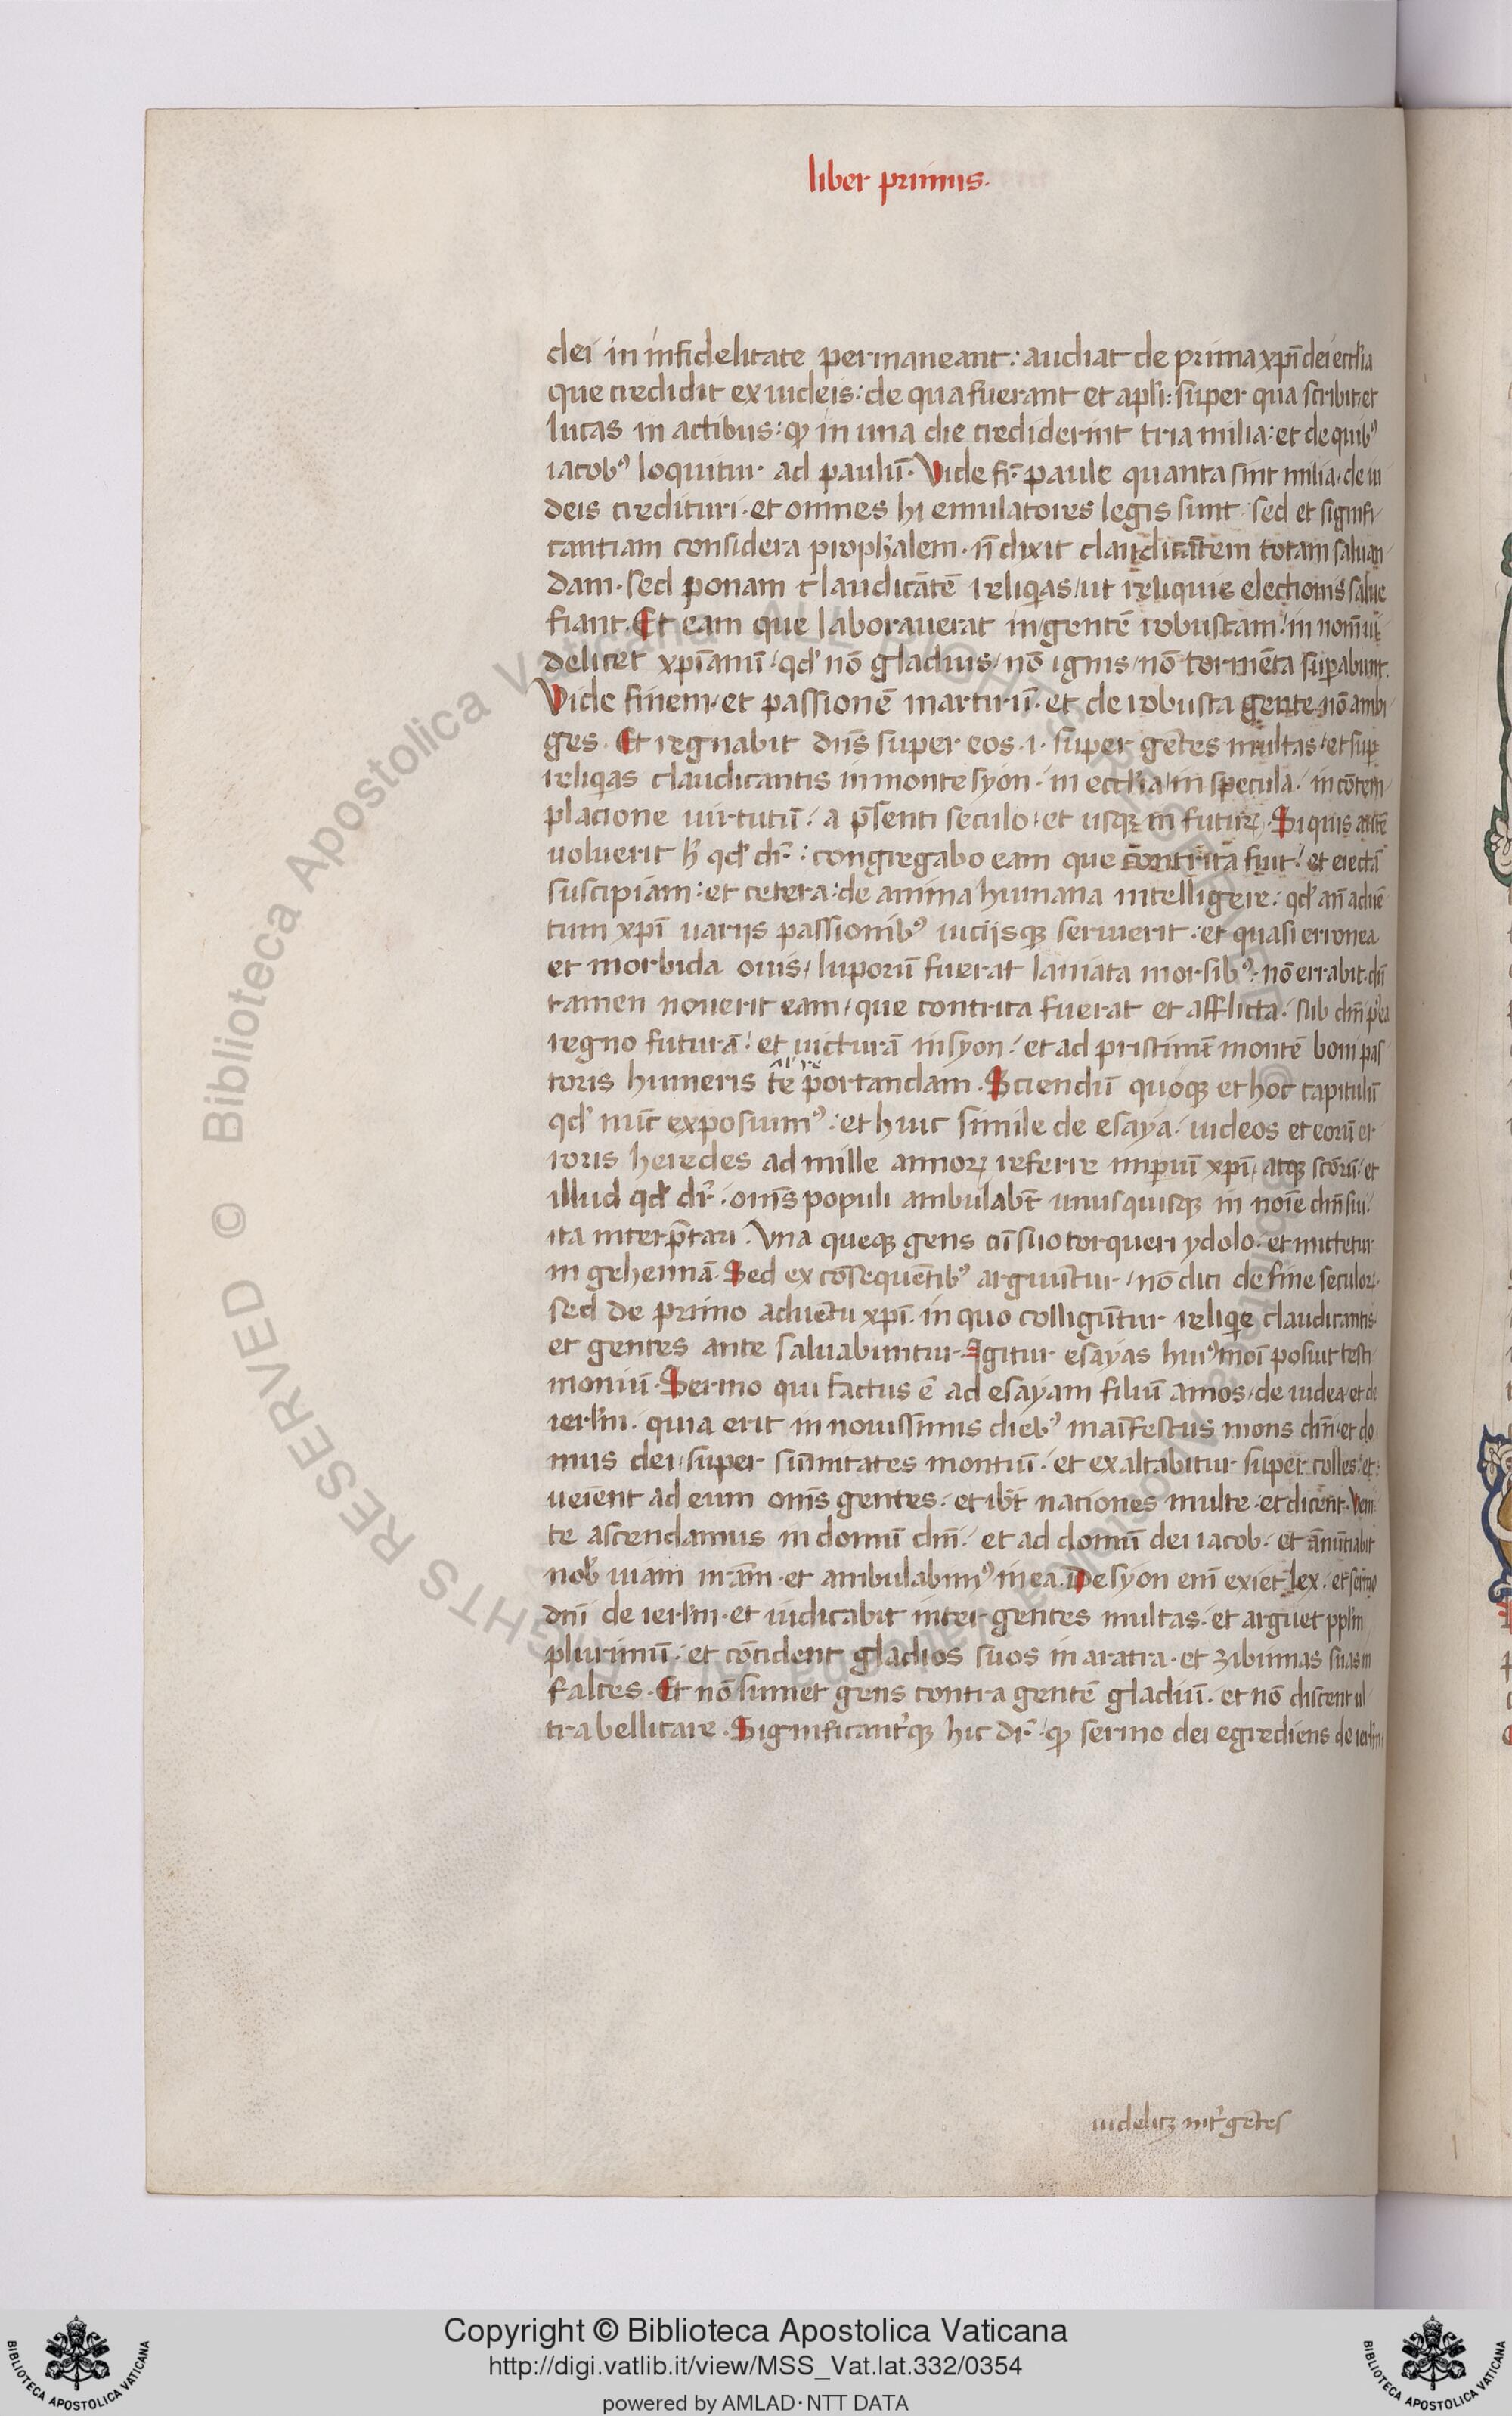 liber primus.
dei in infidelitate permaneant: audiat de prima xp̄i dei eccl'ia
que credidit ex iudeis: de qua fuerant et apl'i: super qua scribit et
lucas in actibus: ꝙ in una die crediderint tria milia: et de quibꝰ
iacobꝰ loquitur ad paulū. Vide fr̄ paule quanta sint milia de iu
deis credituri. et omnes hi emulatores legis sunt: sed et signifi
cantiam considera proph'alem. n̄ dixit claudicātem totam saluan
dam. sed ponam claudicātē reliqias ut reliquie electionis salue
fiant. Et eam que laborauerat in gentē robustam: in nom̄ ui
delicet xp̄ianū qd' nō gladius nō ignis nō tormēta suꝑabunt.
Vide finem et passionē martirū. et de robusta gente nō ambi
ges. Et regnabit dn̄s super eos .i. super gētes multas et sup
reliqias claudicantis in monte syon. in eccl'ia in specula. in cōtem
placione uirtutū: a p̄senti seculo et usqꝫ in futurꝝ. Si quis autē
uoluerit h' qd' dr̄: congregabo eam que contrita fuit: et eiectā
suscipiam: et cetera: de anima humana intelligere: qd' an̄ aduē
tum xp̄i uarijs passionibꝰ uicijsqꝫ seruierit: et quasi erronea
et morbida ouis luporū fuerat laniata morsibꝰ: nō errabit. dū
tamen nouerit eam que contrita fuerat et afflicta. sub dn̄i p'ea
regno futurā: et uicturā in syon: et ad pristinū montē boni pas
toris humeris te portandam. Sciendū quoqꝫ et hoc capitulū
qd' nūc exposuimꝰ: et huic simile de esaya: iudeos et eorū er
roris heredes ad mille annoꝝ referre imꝑiū xp̄i atqꝫ scōrū et
illud qd' dr̄: omīs populi ambulabūt unusquisqꝫ in noīe dn̄i sui:
ita interp̄tari. Vna queqꝫ gens cū suo torqueri ydolo. et mittetur
in gehennā. Sed ex cōsequentibꝰ arguūtur nō dici de fine seculoꝝ.
sed de primo aduētu xp̄i. in quo colligūtur reliqie claudicantis
et gentes ante saluabuntur. Igitur esayas huiꝰmoi posuit testi
moniū. Sermo qui factus ē ad esayam filiū amos de iudea et de
ierl'm. quia erit in nouissimis diebꝰ manifestus mons dn̄i et do
mus dei super sūmitates montiū. et exaltabitur super colles: et
ueīent ad eum omīs gentes. et ibūt nationes multe. et dicent. Veni
te ascendamus in domū dn̄i: et ad domū dei iacob. et ānūtiabit
nob' uiam suam. et ambulabimꝰ in ea. De syon enī exiet lex. et sermo
dn̄i de ierl'm. et iudicabit inter gentes multas. et arguet ppl'm
plurimū. et cōcident gladios suos in aratra. et zibinnas suas in
falces. Et nō sumet gens contra gentē gladiū. et nō discent ul
tra bellicare. Significant'qꝫ hic dr̄ ꝙ sermo dei egrediens de ierl'm
uidelicꝫ int' gētes
Copyright © Biblioteca Apostolica Vaticana
http://digi.vatlib.it/view/MSS_Vat.lat.332/0354
powered by AMLAD · NTT DATA
BIBLIOTECA APOSTOLICA VATICANA
BIBLIOTECA APOSTOLICA VATICANA